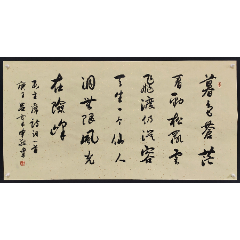 暮色蒼茫
看勁松亂雲
飛渡仍從容
天生一个仙人
洞無限風光
在險峰
毛主席詩詞一首